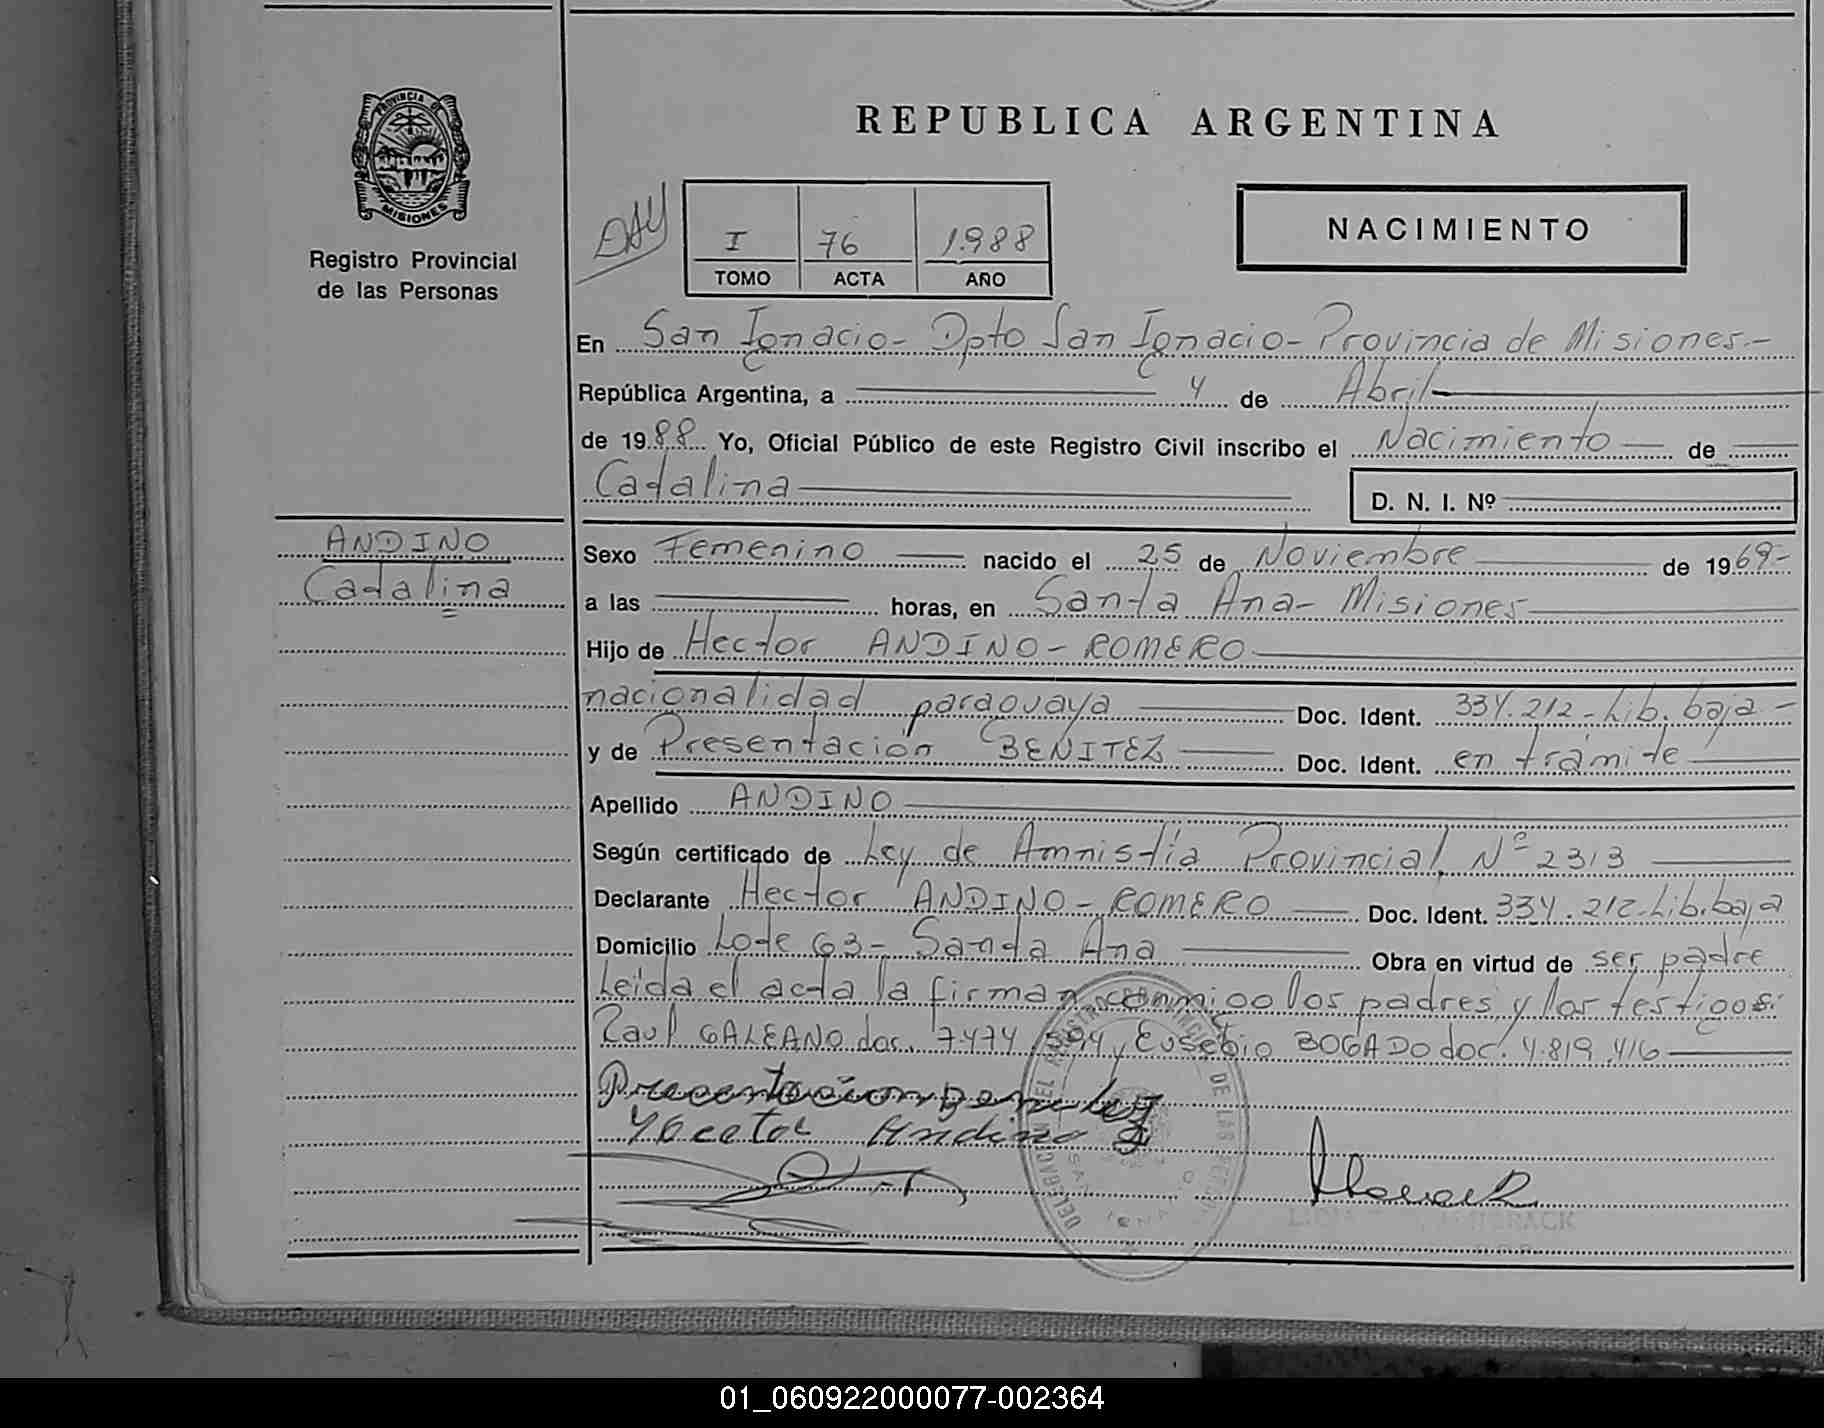 PROVINCIA DE
MISIONES
Registro Provincial
de las Personas
REPUBLICA ARGENTINA
I 76 1.988
TOMO ACTA AÑO
NACIMIENTO
En San Ignacio - Dpto San Ignacio - Provincia de Misiones.-
República Argentina, a 4 de Abril
de 1988 Yo, Oficial Público de este Registro Civil inscribo el Nacimiento de
Catalina
D. N. I. Nº
ANDINO
Catalina
Sexo Femenino nacido el 25 de Noviembre de 1969-
a las horas, en Santa Ana - Misiones
Hijo de Hector ANDINO - ROMERO
nacionalidad paraguaya Doc. Ident. 334.212 - Lib. baja -
y de Presentación BENITEZ Doc. Ident. en trámite
Apellido ANDINO
Según certificado de Ley de Amnistía Provincial Nº 2313
Declarante Hector ANDINO - ROMERO Doc. Ident. 334.212 - Lib. baja
Domicilio Lote 63 - Santa Ana Obra en virtud de ser padre
Leída el acta la firman conmigo los padres y los testigos:
Raul GALEANO doc. 7.474.594 y Eusebio BOGADO doc. 4.819.416
Presentacion benitez
Hector Andino
01_060922000077-002364